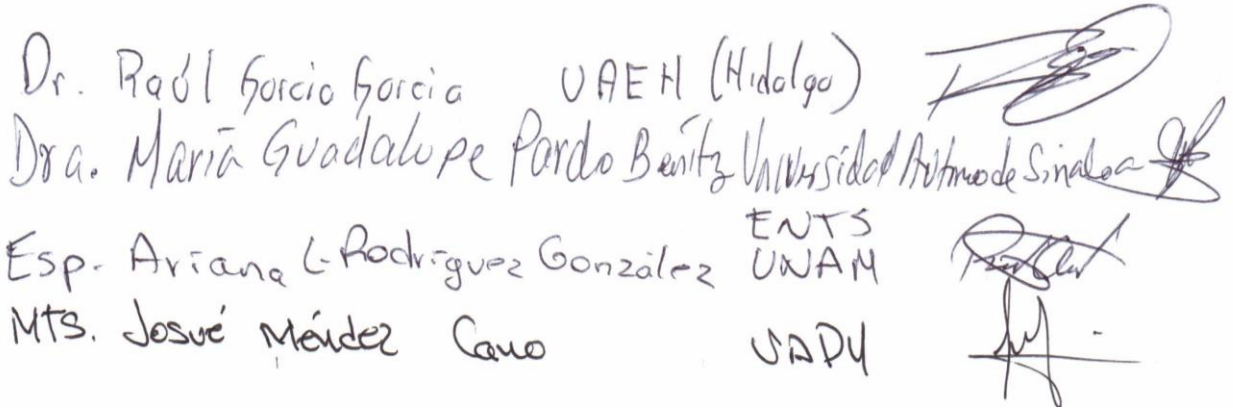 Dr. Raúl García García UAEH (Hidalgo)
Dra. María Guadalupe Pardo Benítz Universidad Autónoma de Sinaloa
ENTS
Esp. Ariana L. Rodríguez González UNAM
MTS. Josué Méndez Cano UADY